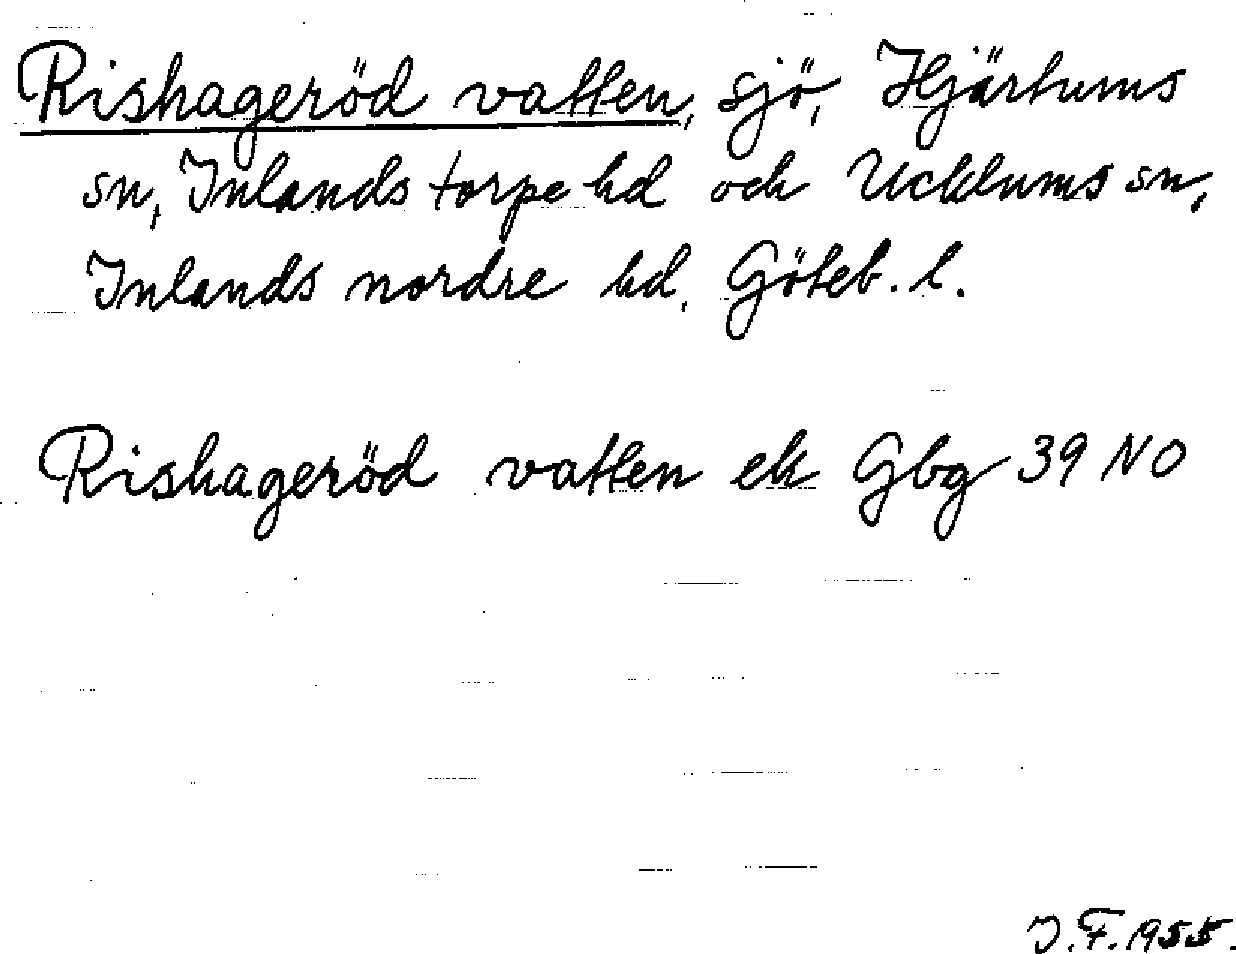 Rishageröd vatten, sjö, Hjärtums
sn, Inlands torpe hd och Ucklums sn,
Inlands nordre hd, Göteb. l.
Rishageröd vatten ek Gbg 39 NO
J.F. 1955.